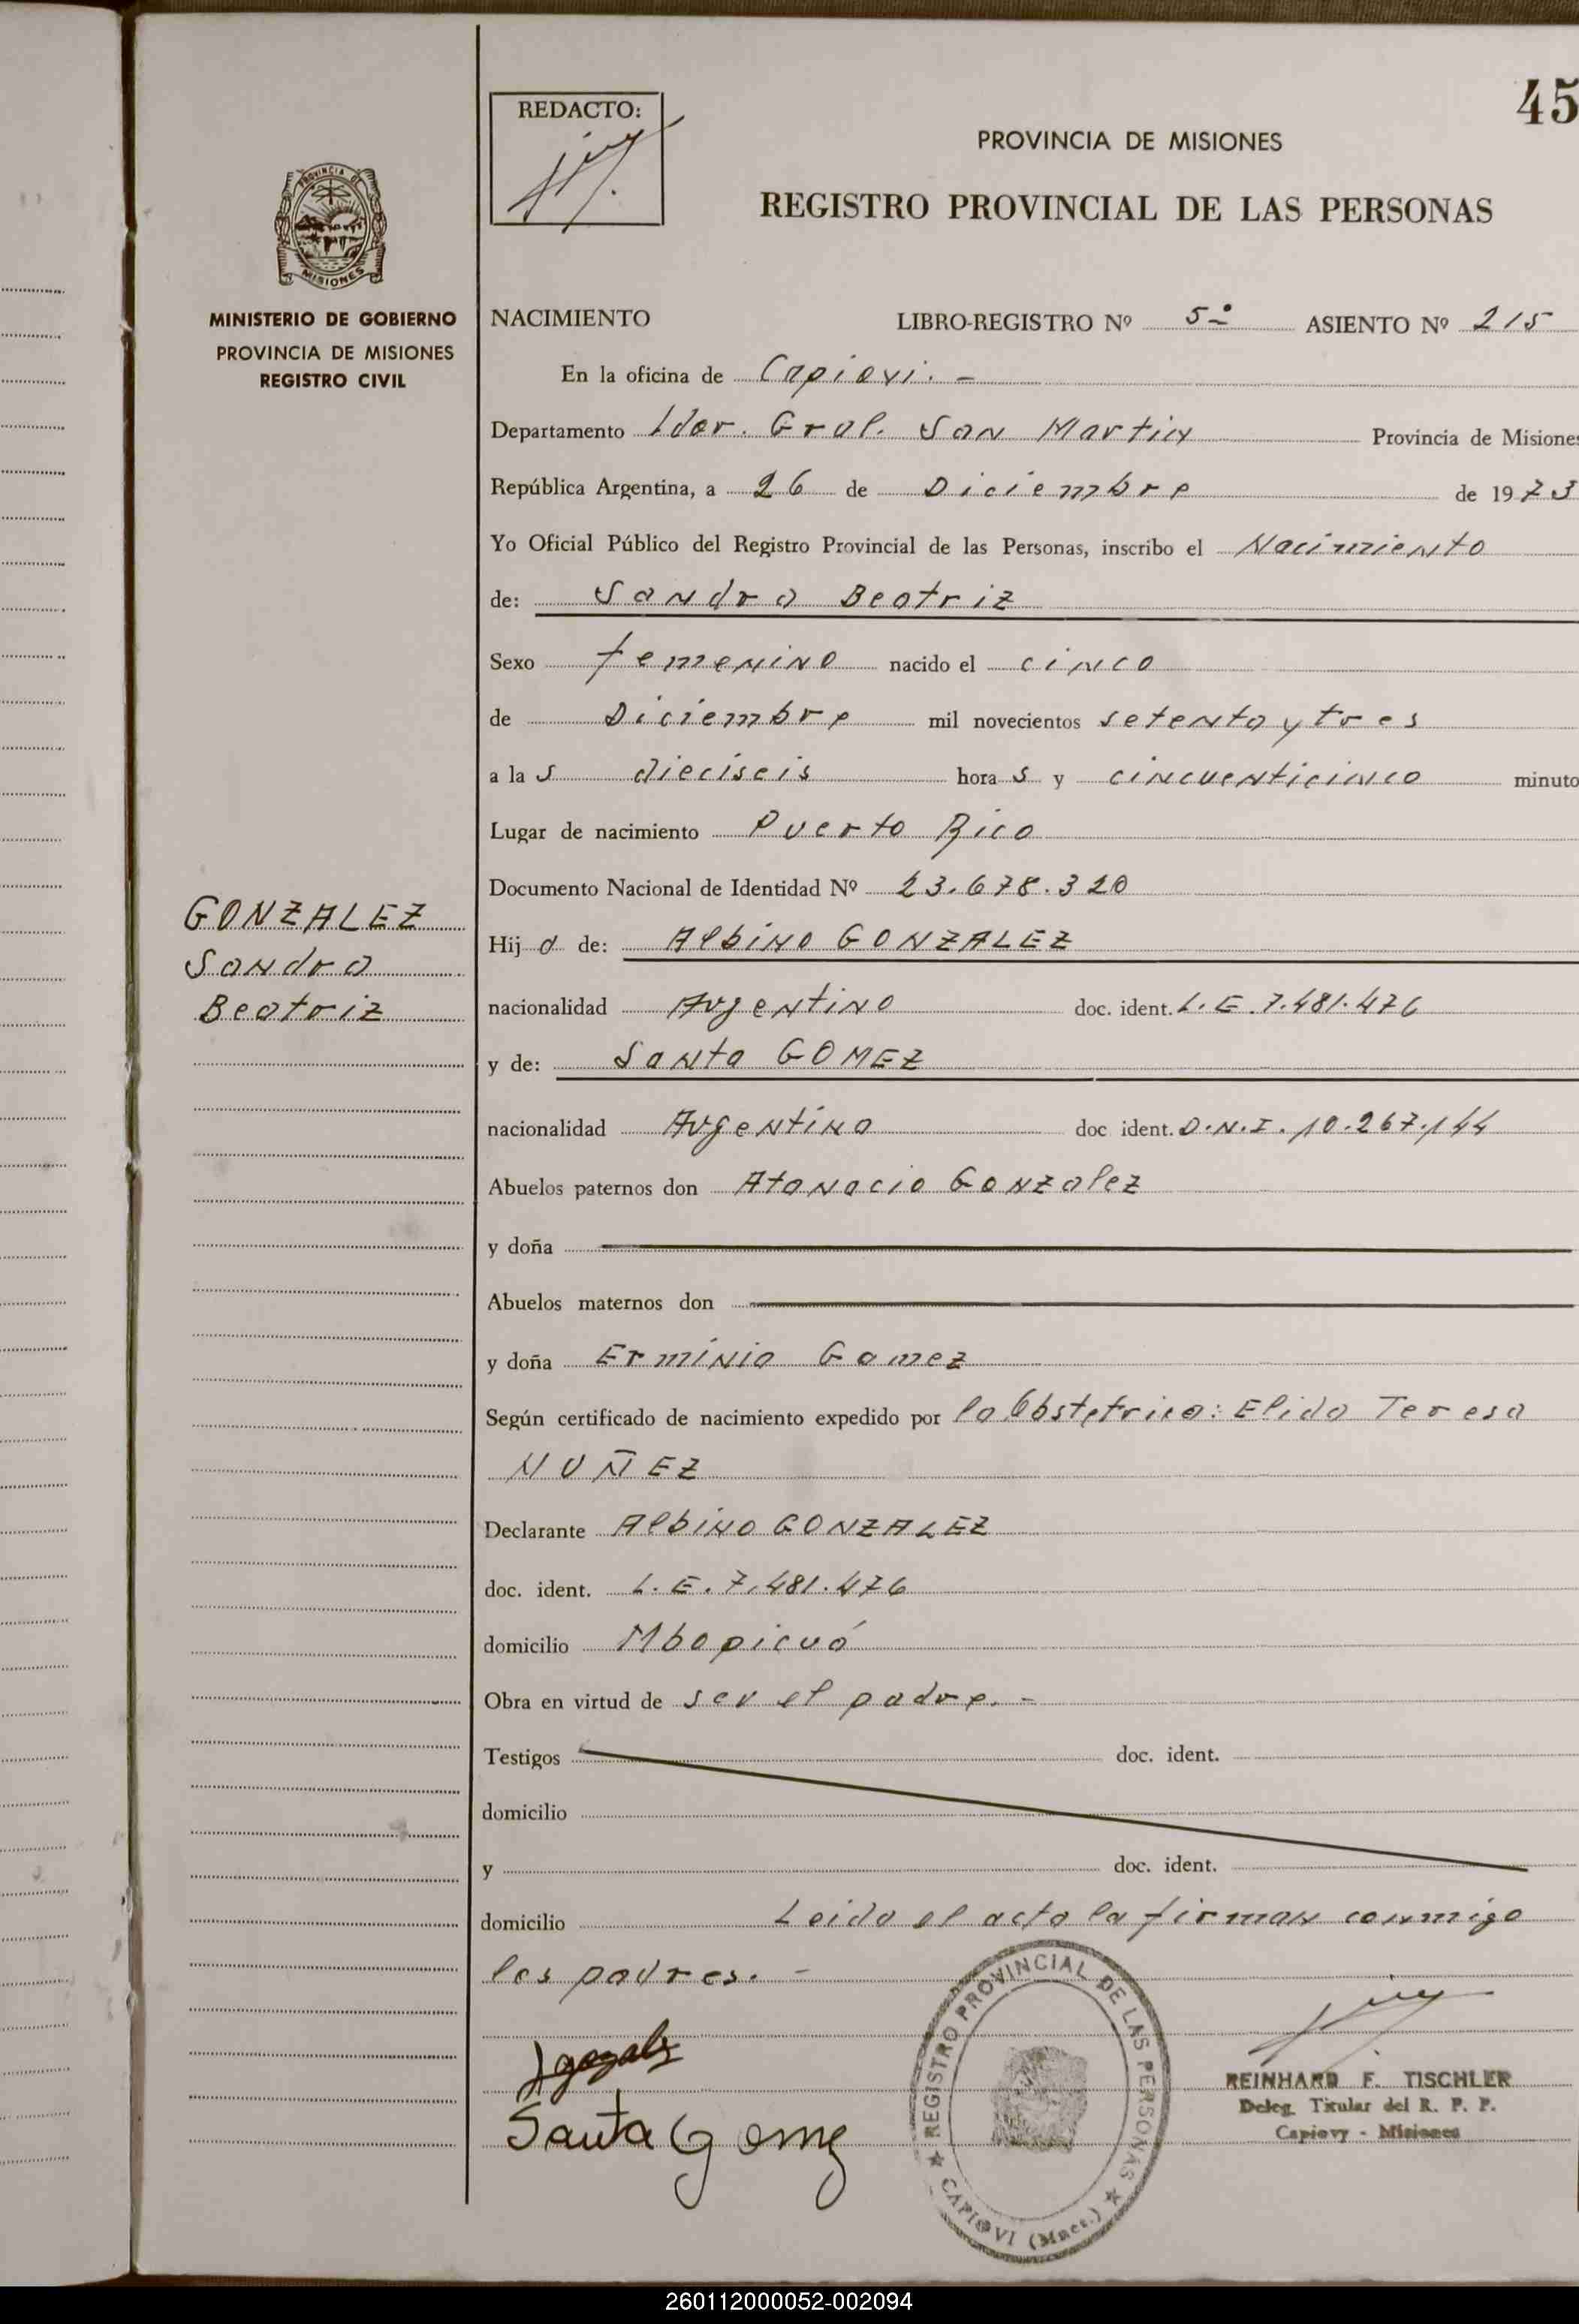 45
REDACTO:
PROVINCIA DE MISIONES
REGISTRO PROVINCIAL DE LAS PERSONAS
PROVINCIA DE
MISIONES
MINISTERIO DE GOBIERNO
PROVINCIA DE MISIONES
REGISTRO CIVIL
NACIMIENTO LIBRO-REGISTRO Nº 5º ASIENTO Nº 215
En la oficina de Capiovi. -
Departamento Ldor. Gral. San Martin Provincia de Misiones
República Argentina, a 26 de Diciembre de 1973
Yo Oficial Público del Registro Provincial de las Personas, inscribo el Nacimiento
de: Sandra Beatriz
Sexo femenino nacido el cinco
de Diciembre mil novecientos setenta y tres
a la s dieciseis hora s y cincuenticinco minuto
Lugar de nacimiento Puerto Rico
Documento Nacional de Identidad Nº 23.678.320
GONZALEZ
Sandra
Beatriz
Hij a de: Albino GONZALEZ
nacionalidad Argentino doc. ident. L.E. 7.481.476
y de: Santa GOMEZ
nacionalidad Argentina doc ident. D.N.I. 10.267.144
Abuelos paternos don Atanacio Gonzalez
y doña
Abuelos maternos don
y doña Erminia Gamez
Según certificado de nacimiento expedido por la Obstetrica: Elida Teresa
NUÑEZ
Declarante Albino GONZALEZ
doc. ident. L.E. 7.481.476
domicilio Mbopicuá
Obra en virtud de ser el padre. -
Testigos doc. ident.
domicilio
y doc. ident.
domicilio Leida el acta la firman conmigo
los padres. -
Santa Gomez
REGISTRO PROVINCIAL DE LAS PERSONAS
CAPIOVI (Mnes.)
REINHARD F. TISCHLER
Deleg. Titular del R. P. P.
Capiovy - Misiones
260112000052-002094